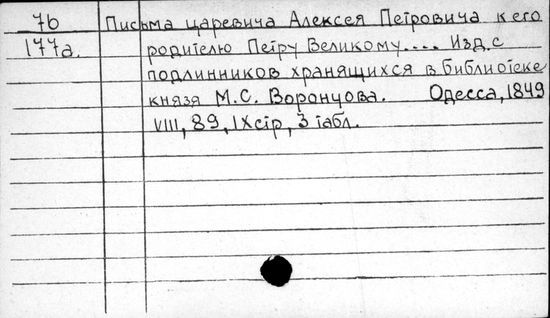 76 Письма царевича Алексея Петровича к его
177а. родителю Петру Великому.... Изд. с
подлинников хранящихся в библиотеке
князя М.С. Воронцова. Одесса, 1849
VIII, 89, IX стр, 3 табл.